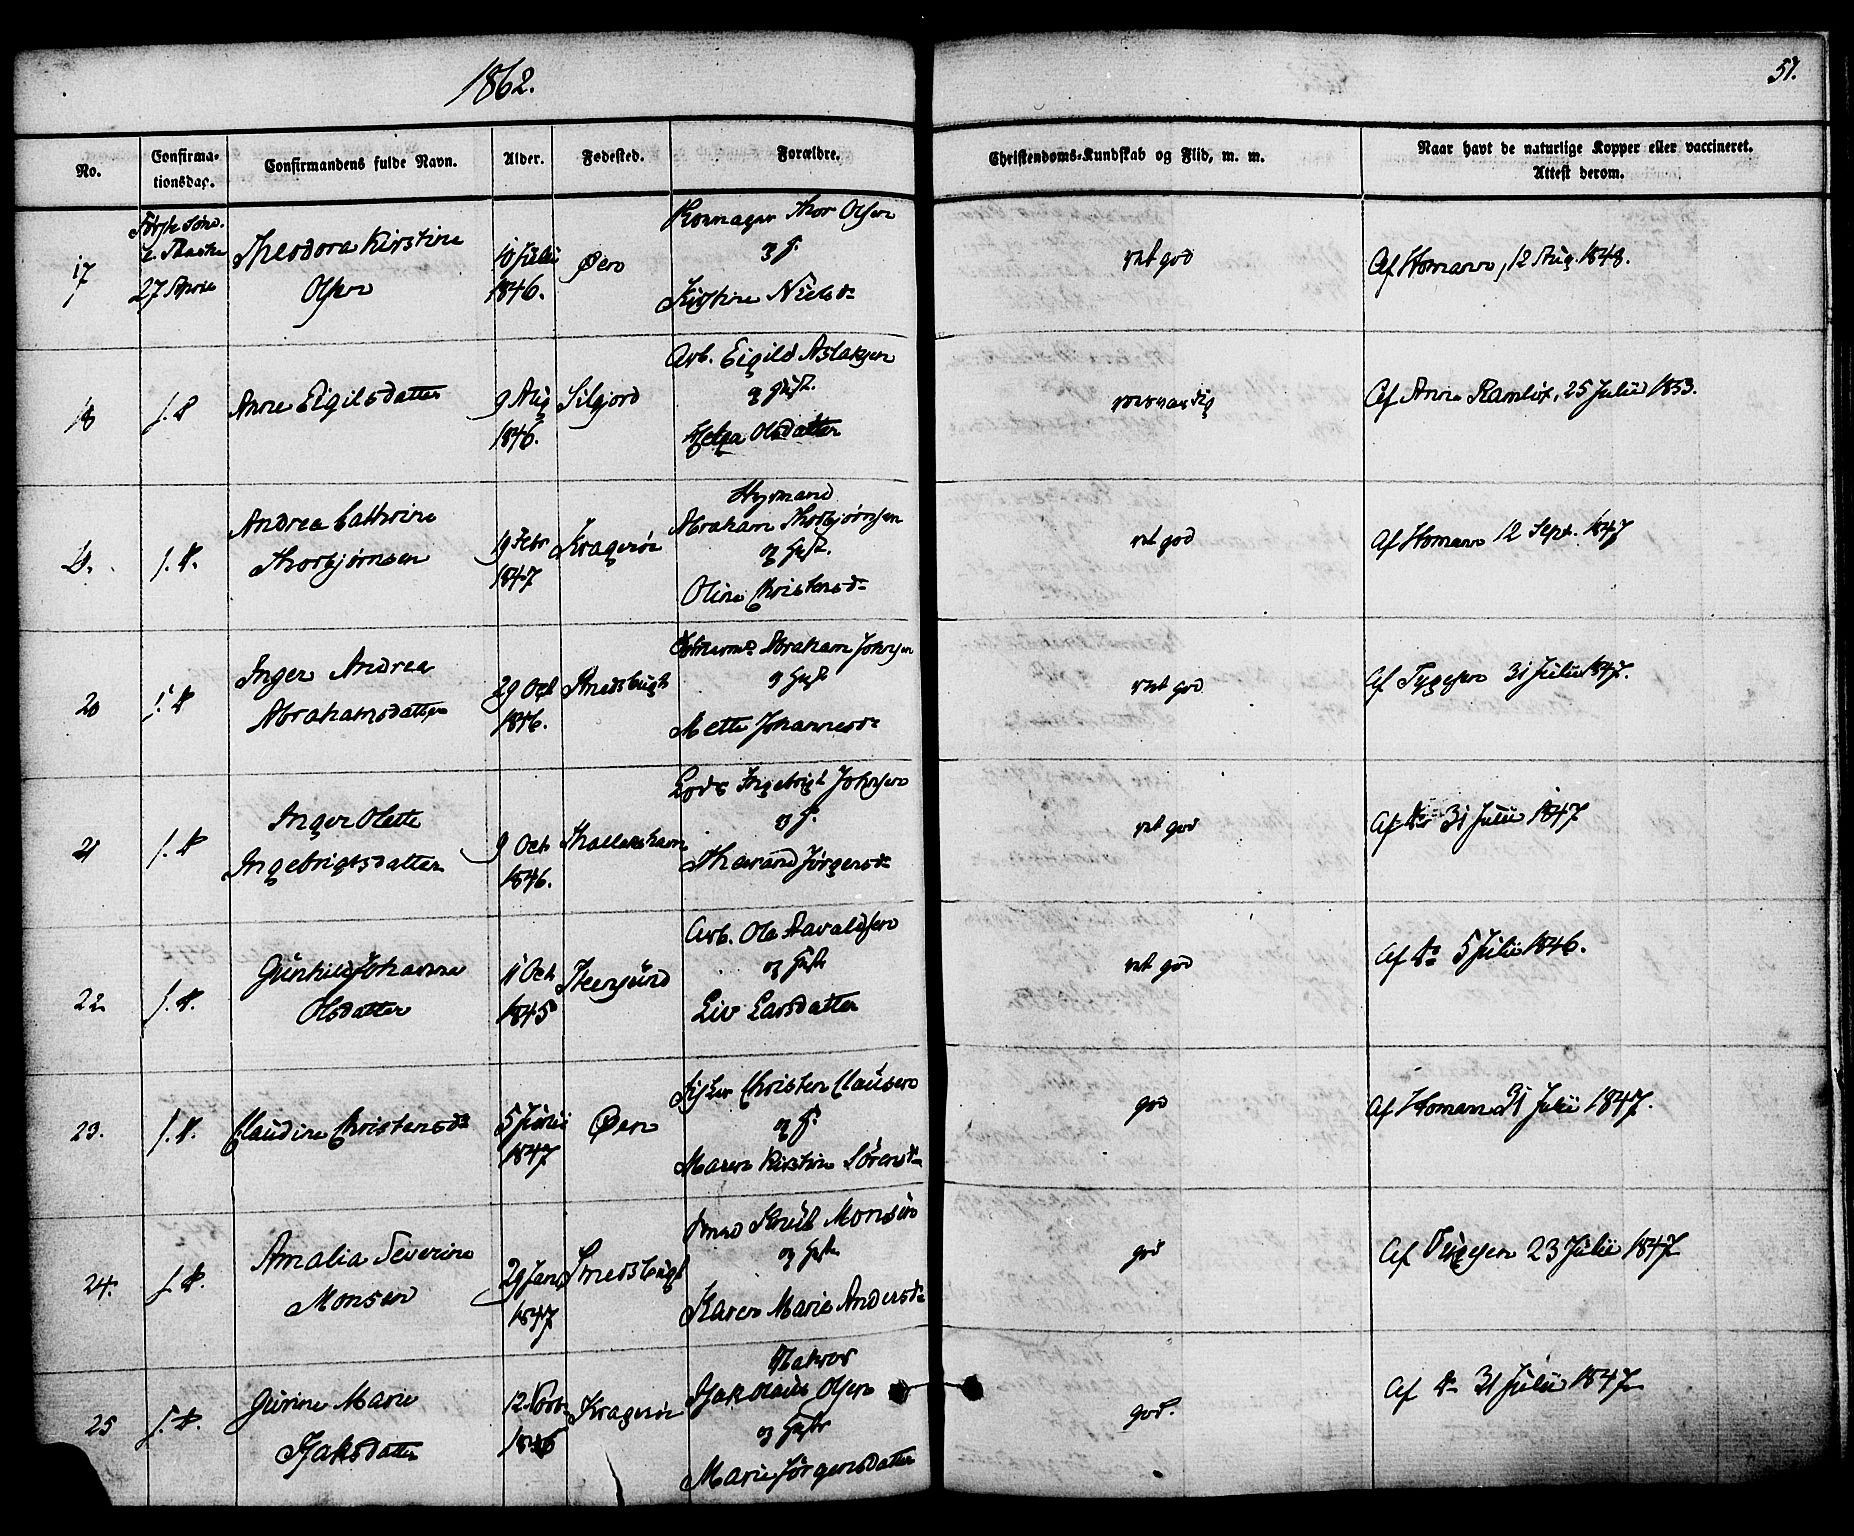 1862.
57.
No.
Confirma-
tionsdag.
Confirmandens fulde Navn.
Alder.
Fødested.
Forældre.
Christendoms-Kundskab og Flid, m. m.
Naar havt de naturlige Kopper eller vaccineret.
Attest derom.
17
27 April
Theodora Kirstine
Olsen
10 Julii
1846.
Øen
Thor Olsen
og H.
Kirstine Nielsd.
ret god
Af Homann, 12 Aug. 1848.
18
Anne Eigilsdatter
9 Aug
1846.
Siljord
Arb. Eigild Aslaksen
og Hust.
Helga Olsdatter
Af Anne Ramlix, 25 Julii 1853.
Andrea Cathrine
Thorbjørnsen
19 Febr
1847
Kragerøe
Styrmand
Abraham Thorbjørnsen
og Hust.
Oline Christensd.
ret god
Af Homann 12 Sept. 1847
20
Inger Andrea
Abrahamsdatter
29 Oct
1846.
Smedsbugt
Abraham Johnsen
og Hust
Mette Johannesd.
ret god
Af Tygesen 31 Julii 1847.
21
Inger Olette
Ingebrigtsdatter
9 Oct
1846.
Lods Ingebrigt Johnsen
og H.
Jørgensd.
ret god
Af do 31 Julii 1847
22
Gunhild Johanne
Olsdatter
11 Oct
1845
Steensund
Arb. Ole Aavaldsen
og Hustr
Liv Larsdatter
ret god
Af do 5 Julii 1846.
23.
Claudine Christensd.
5 Junii
1847
Øen
Fisker Christen Clausen
og H.
Maren Kirstine Sörensd.
god
Af Homann 31 Julii 1847.
24.
Amalia Severine
Monsen
29 Jan
1847
Smedsbugt
Smed Knud Monsen
og Hustr
Karen Marie Andersd.
god
Af Tygesen 23 Julii 1847
25
Gurine Marie
Isaksdatter
Kragerøe
Matros
Isak Olaus Olsen
og Hustr
Marie Jørgensdatter
god.
Af do 31 Julii 1847